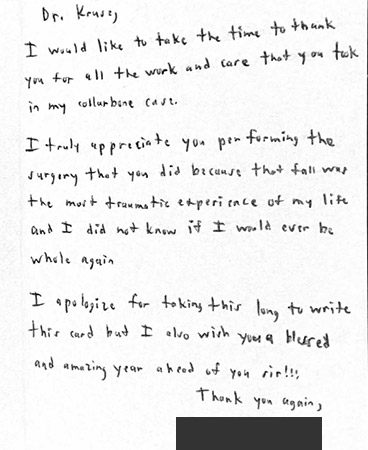 Dr. Kruse,
I would like to take the time to thank
you for all the work and care that you took
in my collarbone case.
I truly appreciate you performing the
surgery that you did because that fall was
the most traumatic experience of my life
and I did not know if I would ever be
whole again
I apologize for taking this long to write
this card but I also wish you a blessed
and amazing year ahead of you sir!!!
Thank you again,